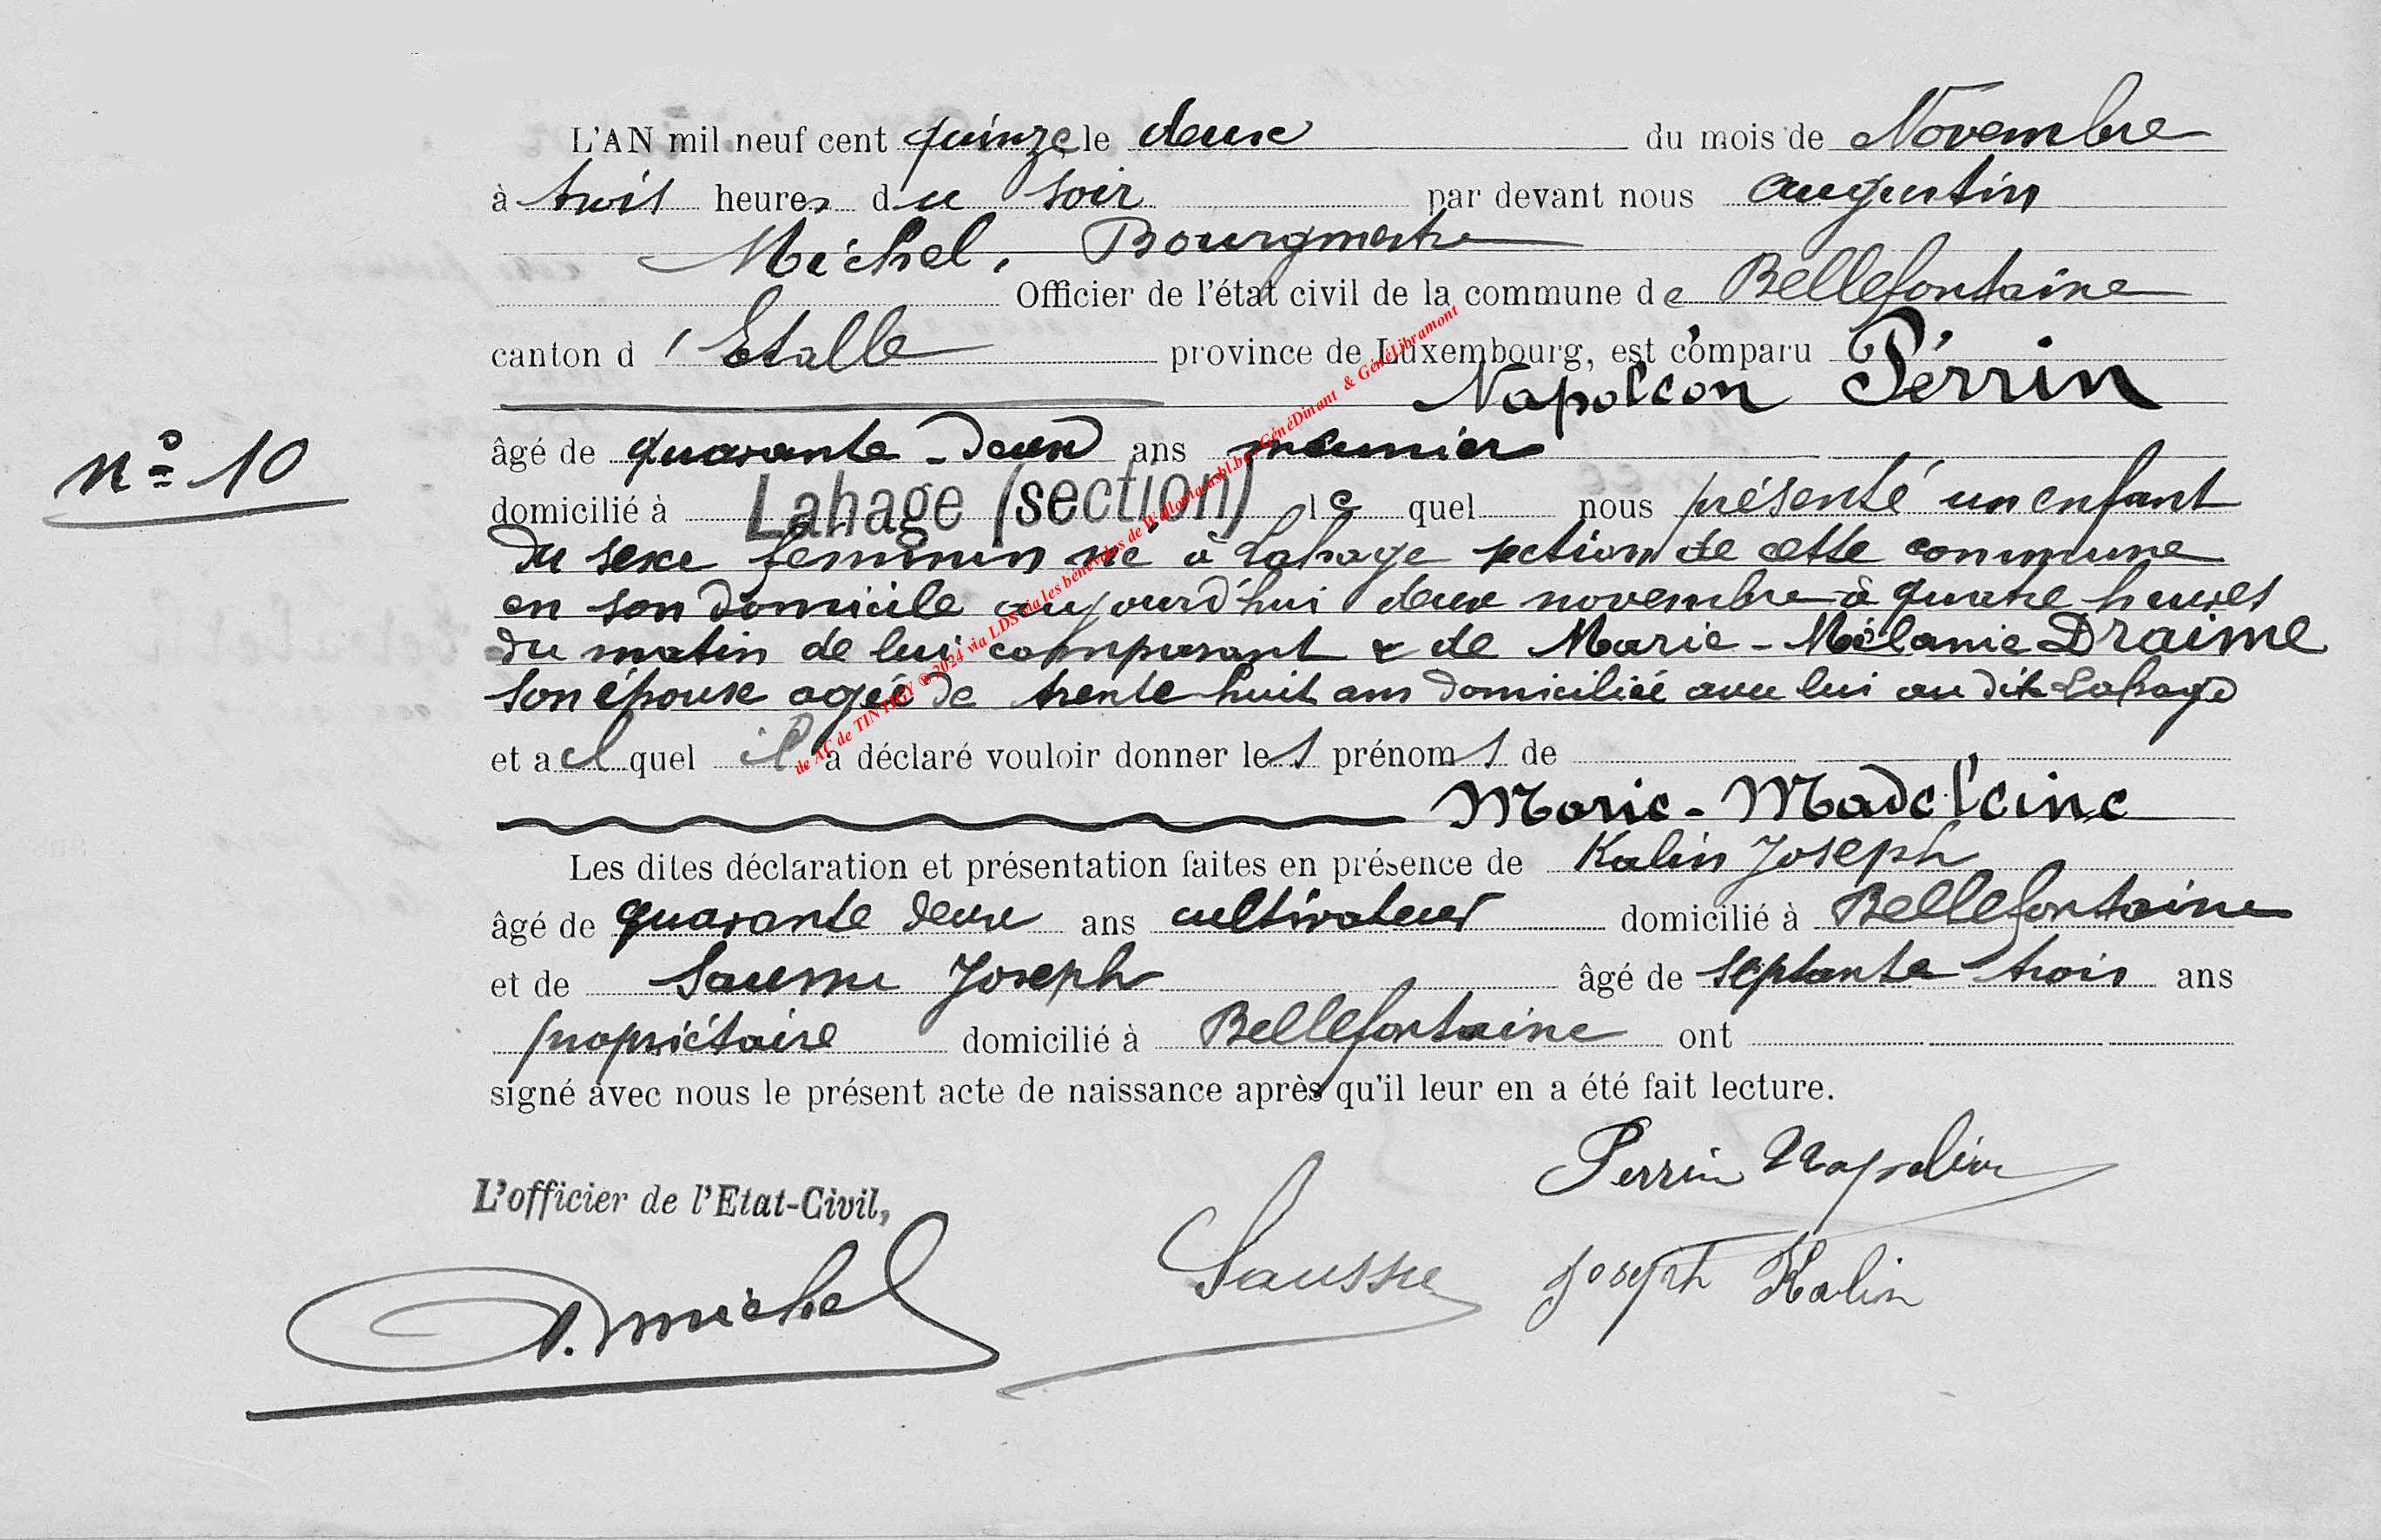 L'AN mil neuf cent quinze le deux du mois de Novembre
à trois heures du soir par devant nous Augustin
Michel, Bourgmestre
Officier de l'état civil de la commune de Bellefontaine
canton d'Etalle province de Luxembourg, est comparu
Napoléon Perrin
âgé de quarante-deux ans meunier
n° 10
domicilié à Lahage (section) le quel nous présenté un enfant
du sexe feminin né à Lahage section de cette commune
en son domicile aujourd'hui deux novembre à quatre heures
du matin de lui comparant & de Marie-Mélanie Draime
son épouse agée de trente huit ans domiciliée avec lui au dit Lahage
et a el quel il a déclaré vouloir donner les prénoms de
Marie-Madeleine
Les dites déclaration et présentation faites en présence de Kalin Joseph
âgé de quarante deux ans cultivateur domicilié à Bellefontaine
et de Joseph âgé de septante trois ans
propriétaire domicilié à Bellefontaine ont
signé avec nous le présent acte de naissance après qu'il leur en a été fait lecture.
Perrin Napoléon
L'officier de l'Etat-Civil,
A. Michel
Joseph Kalin
de AC de TINTIGY © 2024 via LDS via les bénévoles de Wallonia asbl.be, GénéDinant & GénéLibramont